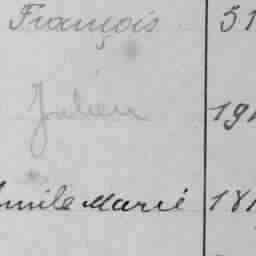 François 51
Julien 191
Emile Marie 181